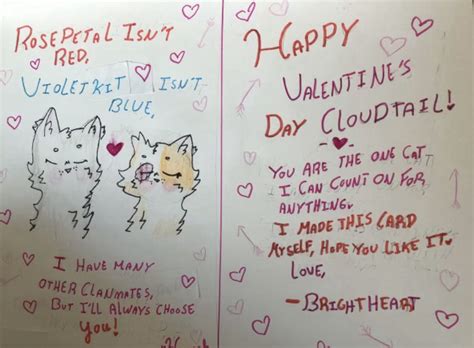 RosePetal Isn't
Red,
Violetkit Isn't
Blue,
I Have Many
Other Clanmates,
But I'll Always Choose
You!
Happy
Valentine's
Day Cloudtail!
You are the one cat
I can count on for
anything.
I made this card
myself, hope you like it.
Love,
-Brightheart